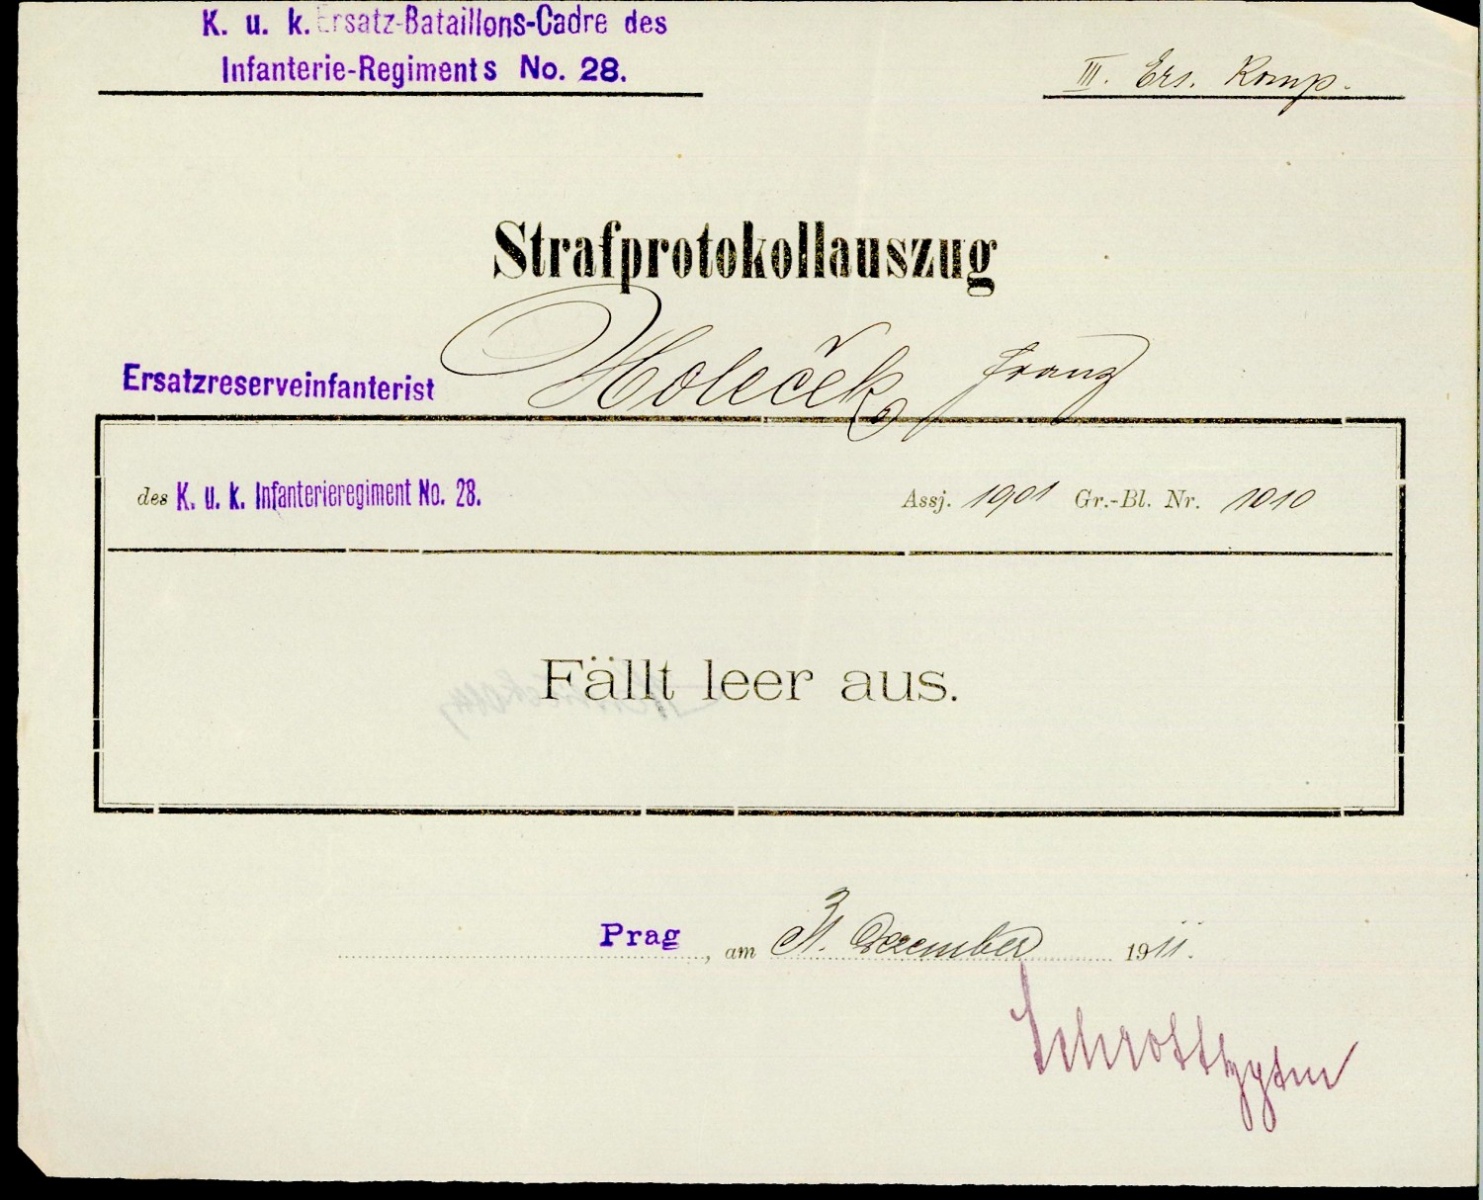 K. u. k. Ersatz-Bataillons-Cadre des
Infanterie-Regiments No. 28.
III. Ers. Komp.
Strafprotokollauszug
Ersatzreserveinfanterist Holeček Franz
des K. u. k. Infanterieregiment No. 28. Assj. 1901 Gr.-Bl. Nr. 1010
Fällt leer aus.
Prag, am 31. Dezember 1911.